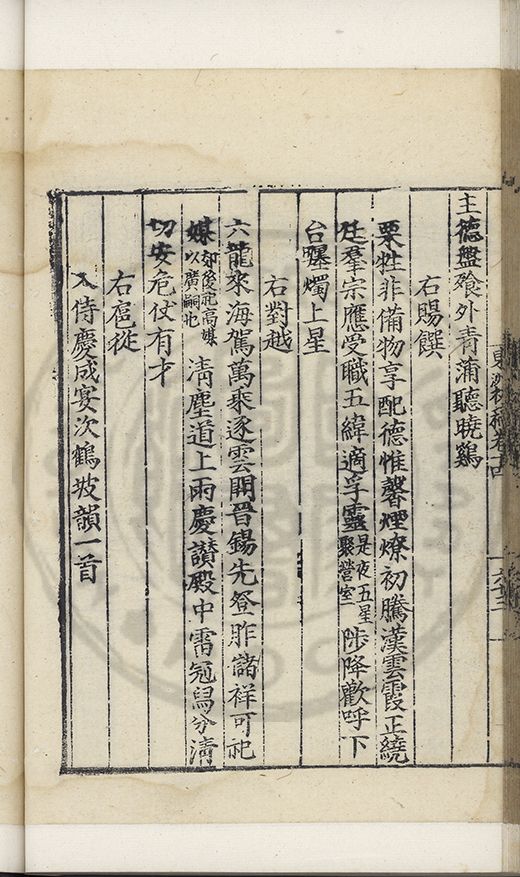 主德盤飱外青蒲聽曉鷄
右賜饌
栗牲非備物享配德惟馨煙燎初騰漢雲霞正繞
廷羣宗應受職五緯適孚靈是夜五星聚營室陟降歡呼下
台躔燭上星
右對越
六龍來海駕萬乘逐雲開晉錫先登胙諸祥可祀
媒却後祀高媒以廣嗣祀清塵道上雨慶讃殿中雷冠舄分清
切安危仗有才
右扈從
入侍慶成宴次鶴坡韻一首